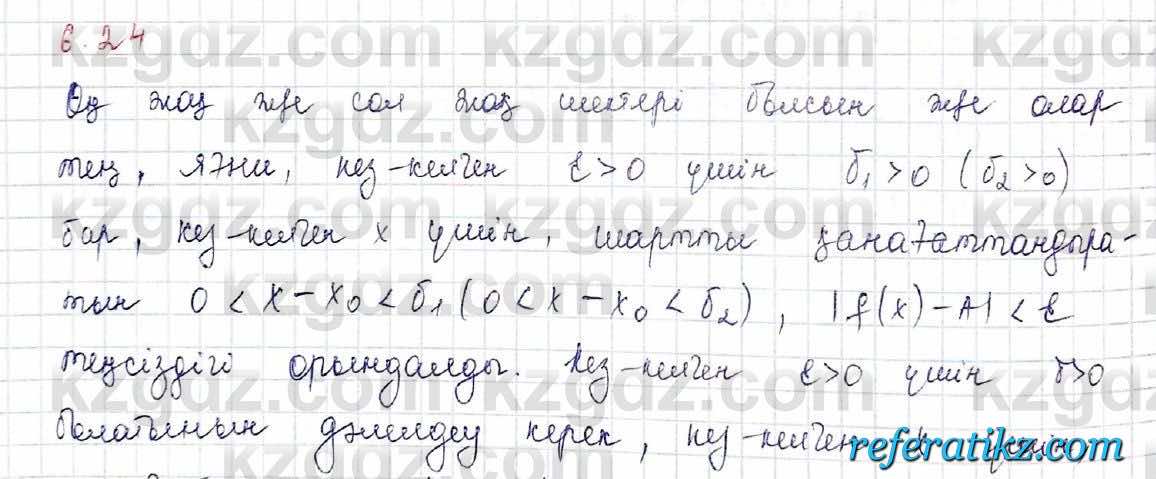 6.24
Оң жақ және сол жақ шектері болсын және олар
тең, яғни, кез-келген ε>0 үшін δ₁>0 (δ₂>0)
бар, кез-келген x үшін, шартты қанағаттандыра-
тын 0<x-x₀<δ₁(0<x-x₀<δ₂), |f(x)-A|<ε
теңсіздігі орындалды. Кез-келген ε>0 үшін δ>0
болатынын дәлелдеу керек, кез-келген x үшін,
kzgdz.com
referatikz.com